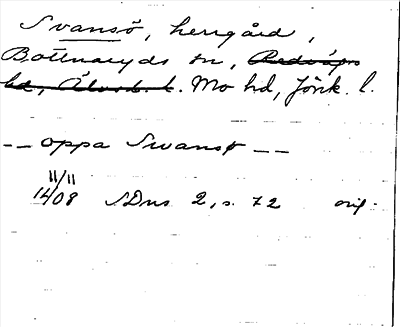 Svansö, herrgård,
Bottnaryds sn, Redvägs
hd, Älvsb. l. Mo hd, Jönk. l.
-- oppa Swansø --
11/11
14/08 SDns 2, s. 72 orig.